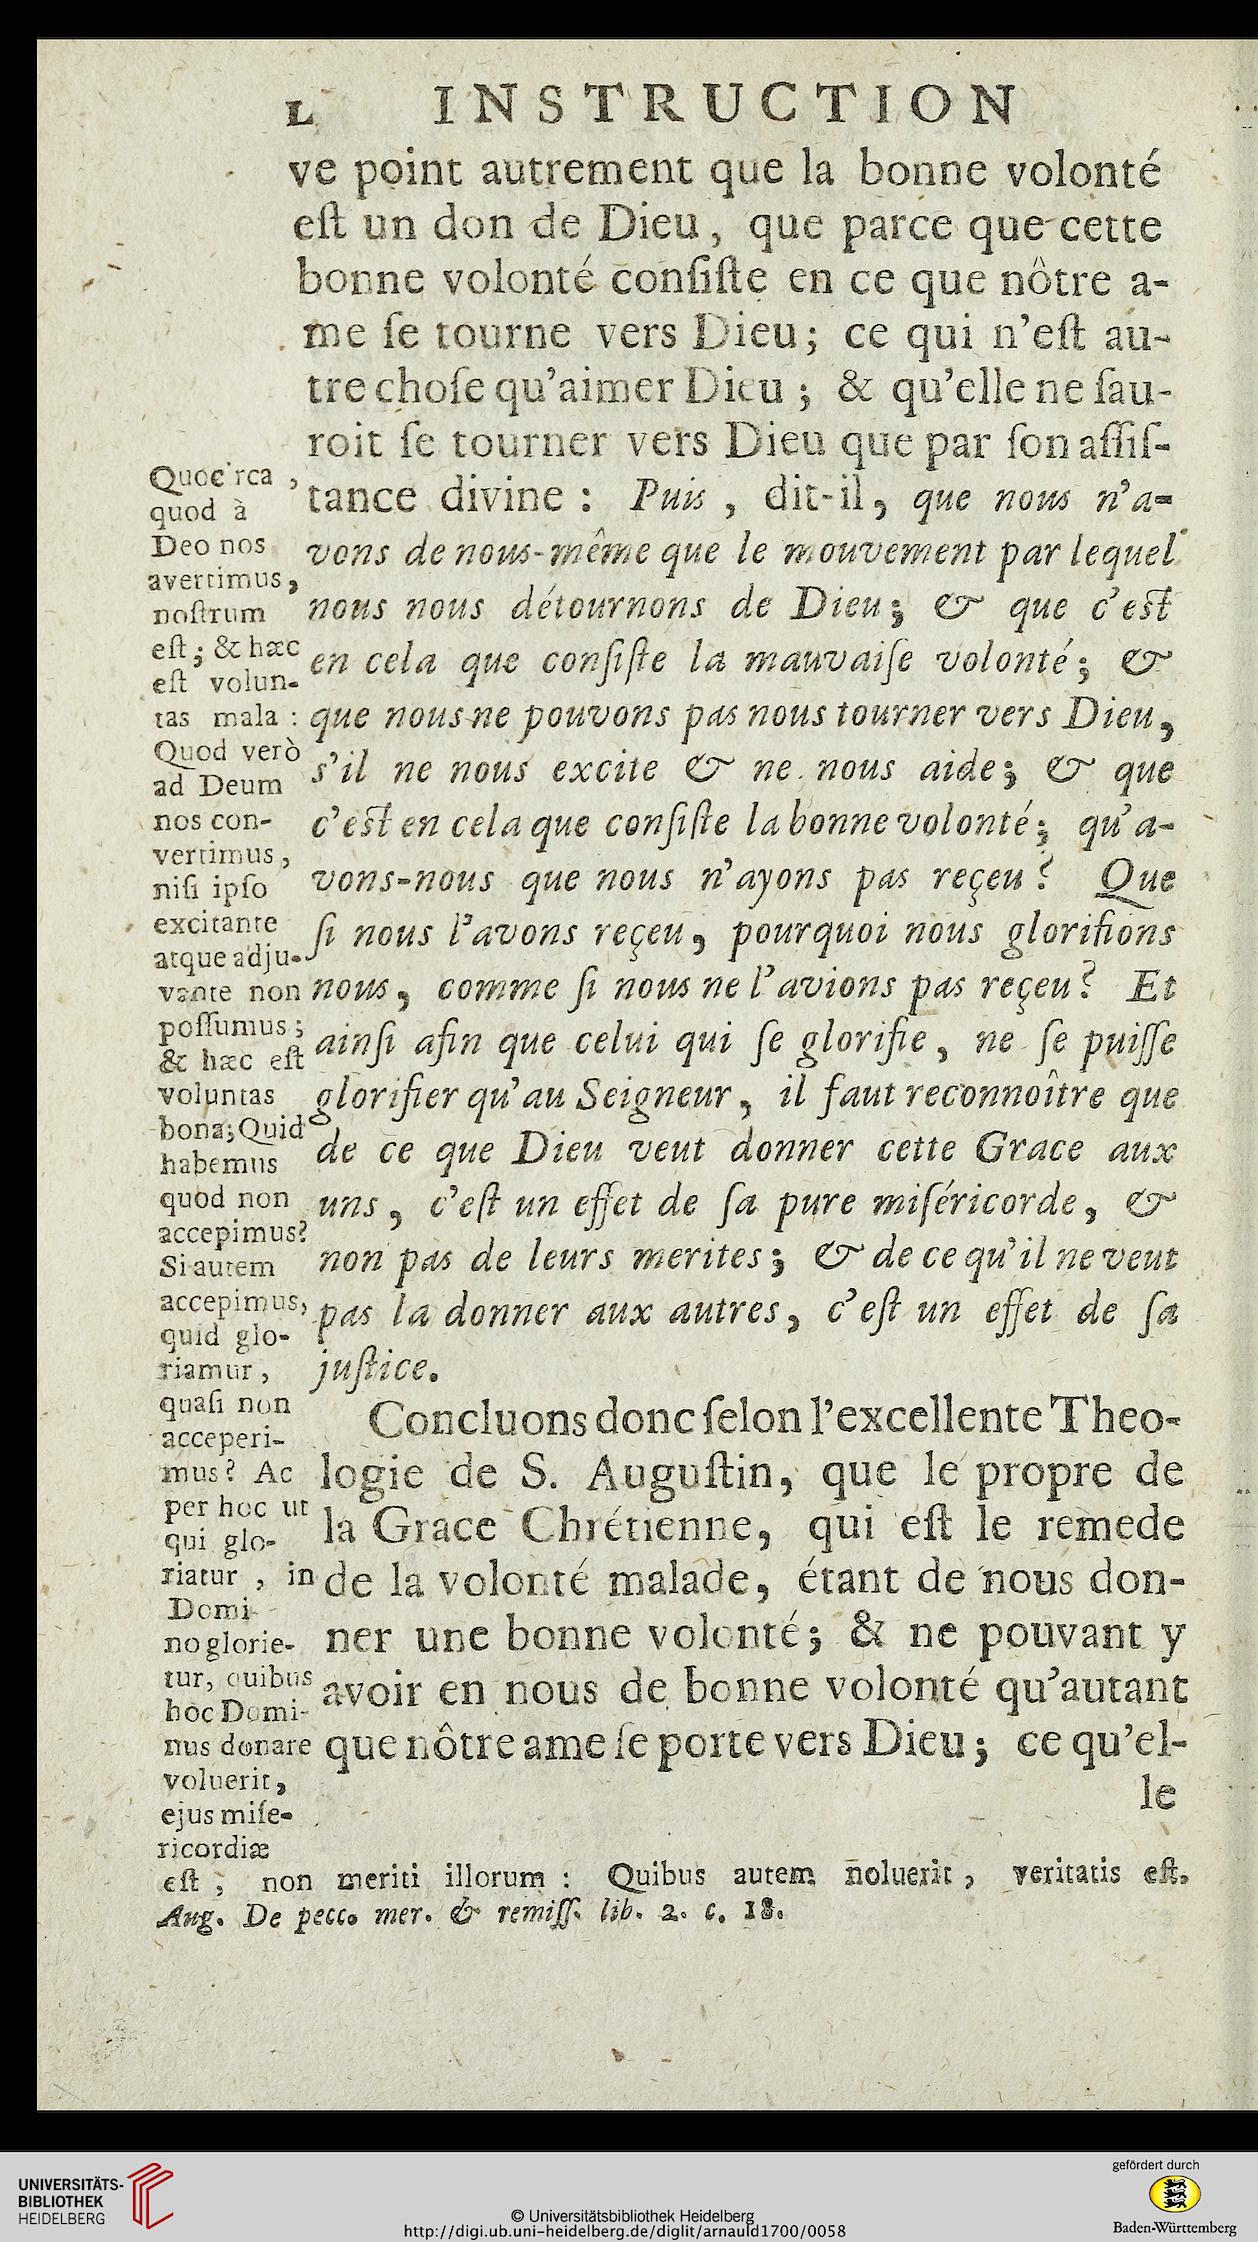 L INSTRUCTION
ve point autrement que la bonne volonté
eſt un don de Dieu, que parce que cette
bonne volonté conſiſte en ce que nôtre a-
me ſe tourne vers Dieu; ce qui n'eſt au-
tre choſe qu'aimer Dieu; & qu'elle ne ſau-
roit ſe tourner vers Dieu que par ſon aſſiſ-
tance divine : Puis, dit-il, que nous n'a-
vons de nous-même que le mouvement par lequel
nous nous détournons de Dieu; & que c'eſt
en cela que conſiſte la mauvaiſe volonté; &
que nous ne pouvons pas nous tourner vers Dieu,
s'il ne nous excite & ne nous aide; & que
c'eſt en cela que conſiſte la bonne volonté; qu'a-
vons-nous que nous n'ayons pas reçeu? Que
ſi nous l'avons reçeu, pourquoi nous glorifions
nous, comme ſi nous ne l'avions pas reçeu? Et
ainſi afin que celui qui ſe glorifie, ne ſe puiſſe
glorifier qu'au Seigneur, il faut reconnoître que
de ce que Dieu veut donner cette Grace aux
uns, c'eſt un effet de ſa pure miſéricorde, &
non pas de leurs merites; & de ce qu'il ne veut
pas la donner aux autres, c'eſt un effet de ſa
juſtice.
Concluons donc ſelon l'excellente Theo-
logie de S. Auguſtin, que le propre de
la Grace Chrétienne, qui eſt le remede
de la volonté malade, étant de nous don-
ner une bonne volonté; & ne pouvant y
avoir en nous de bonne volonté qu'autant
que nôtre ame ſe porte vers Dieu; ce qu'el-
le
Quocirca,
quod à
Deo nos
avertimus,
noſtrum
eſt; & hæc
eſt volun-
tas mala :
Quod verò
ad Deum
nos con-
vertimus,
niſi ipſo
excitante
atque adju-
vante non
poſſumus;
& hæc eſt
voluntas
bona; Quid
habemus
quod non
accepimus?
Si autem
accepimus,
quid glo-
riamur,
quaſi non
acceperi-
mus? Ac
per hoc ut
qui glo-
riatur, in
Domi-
no glorie-
tur, quibus
hoc Domi-
nus donare
voluerit,
ejus miſe-
ricordiæ
eſt; non meriti illorum : Quibus autem noluerit, veritatis eſt.
Aug. De pecc. mer. & remiſſ. lib. 2. c. 18.
UNIVERSITÄTS-
BIBLIOTHEK
HEIDELBERG
© Universitätsbibliothek Heidelberg
http://digi.ub.uni-heidelberg.de/diglit/arnauld1700/0058
gefördert durch
Baden-Württemberg